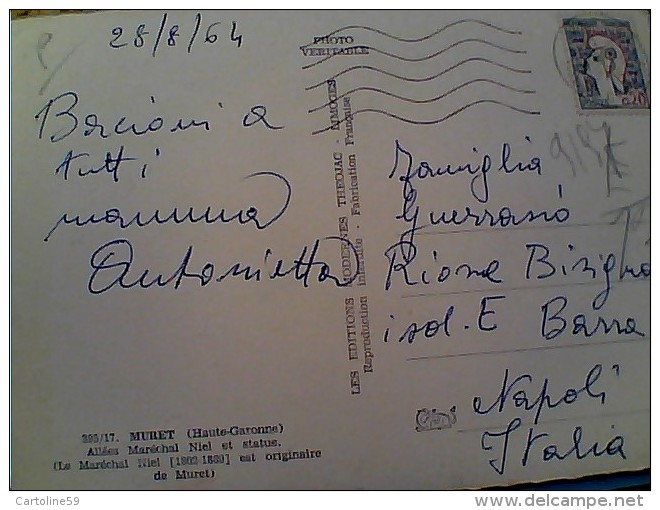 28/8/64
PHOTO
VERITABLE
0,20
Bacioni a
tutti
mamma
Antonietta
LES EDITIONS MODERNES THEOJAC - LIMOGES
Reproduction interdite - Fabrication Française
famiglia
Rione
isol. E Barra
Napoli
Italia
395/17. MURET (Haute-Garonne)
Allées Maréchal Niel et statue.
(Le Maréchal Niel [1802-1869] est originaire
de Muret)
Cartoline59